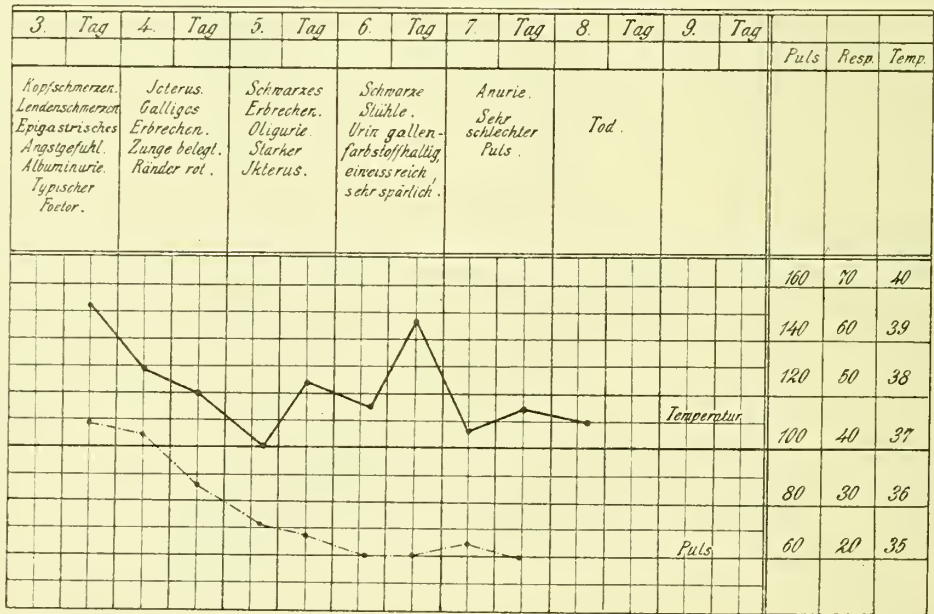 3. Tag 4. Tag 5. Tag 6. Tag 7. Tag 8. Tag 9. Tag
Puls Resp. Temp.
Kopfschmerzen.
Lendenschmerzen
Epigastrisches
Angstgefühl.
Albuminurie.
Typischer
Foetor.
Jcterus.
Galliges
Erbrechen.
Zunge belegt.
Ränder rot.
Schwarzes
Erbrechen.
Oligurie.
Starker
Jkterus.
Schwarze
Stühle.
Urin gallen-
farbstoffhaltig,
eiweissreich,
sehr spärlich.
Anurie.
Sehr
schlechter
Puls.
Tod.
160 70 40
140 60 39
120 50 38
Temperatur
100 40 37
80 30 36
Puls
60 20 35